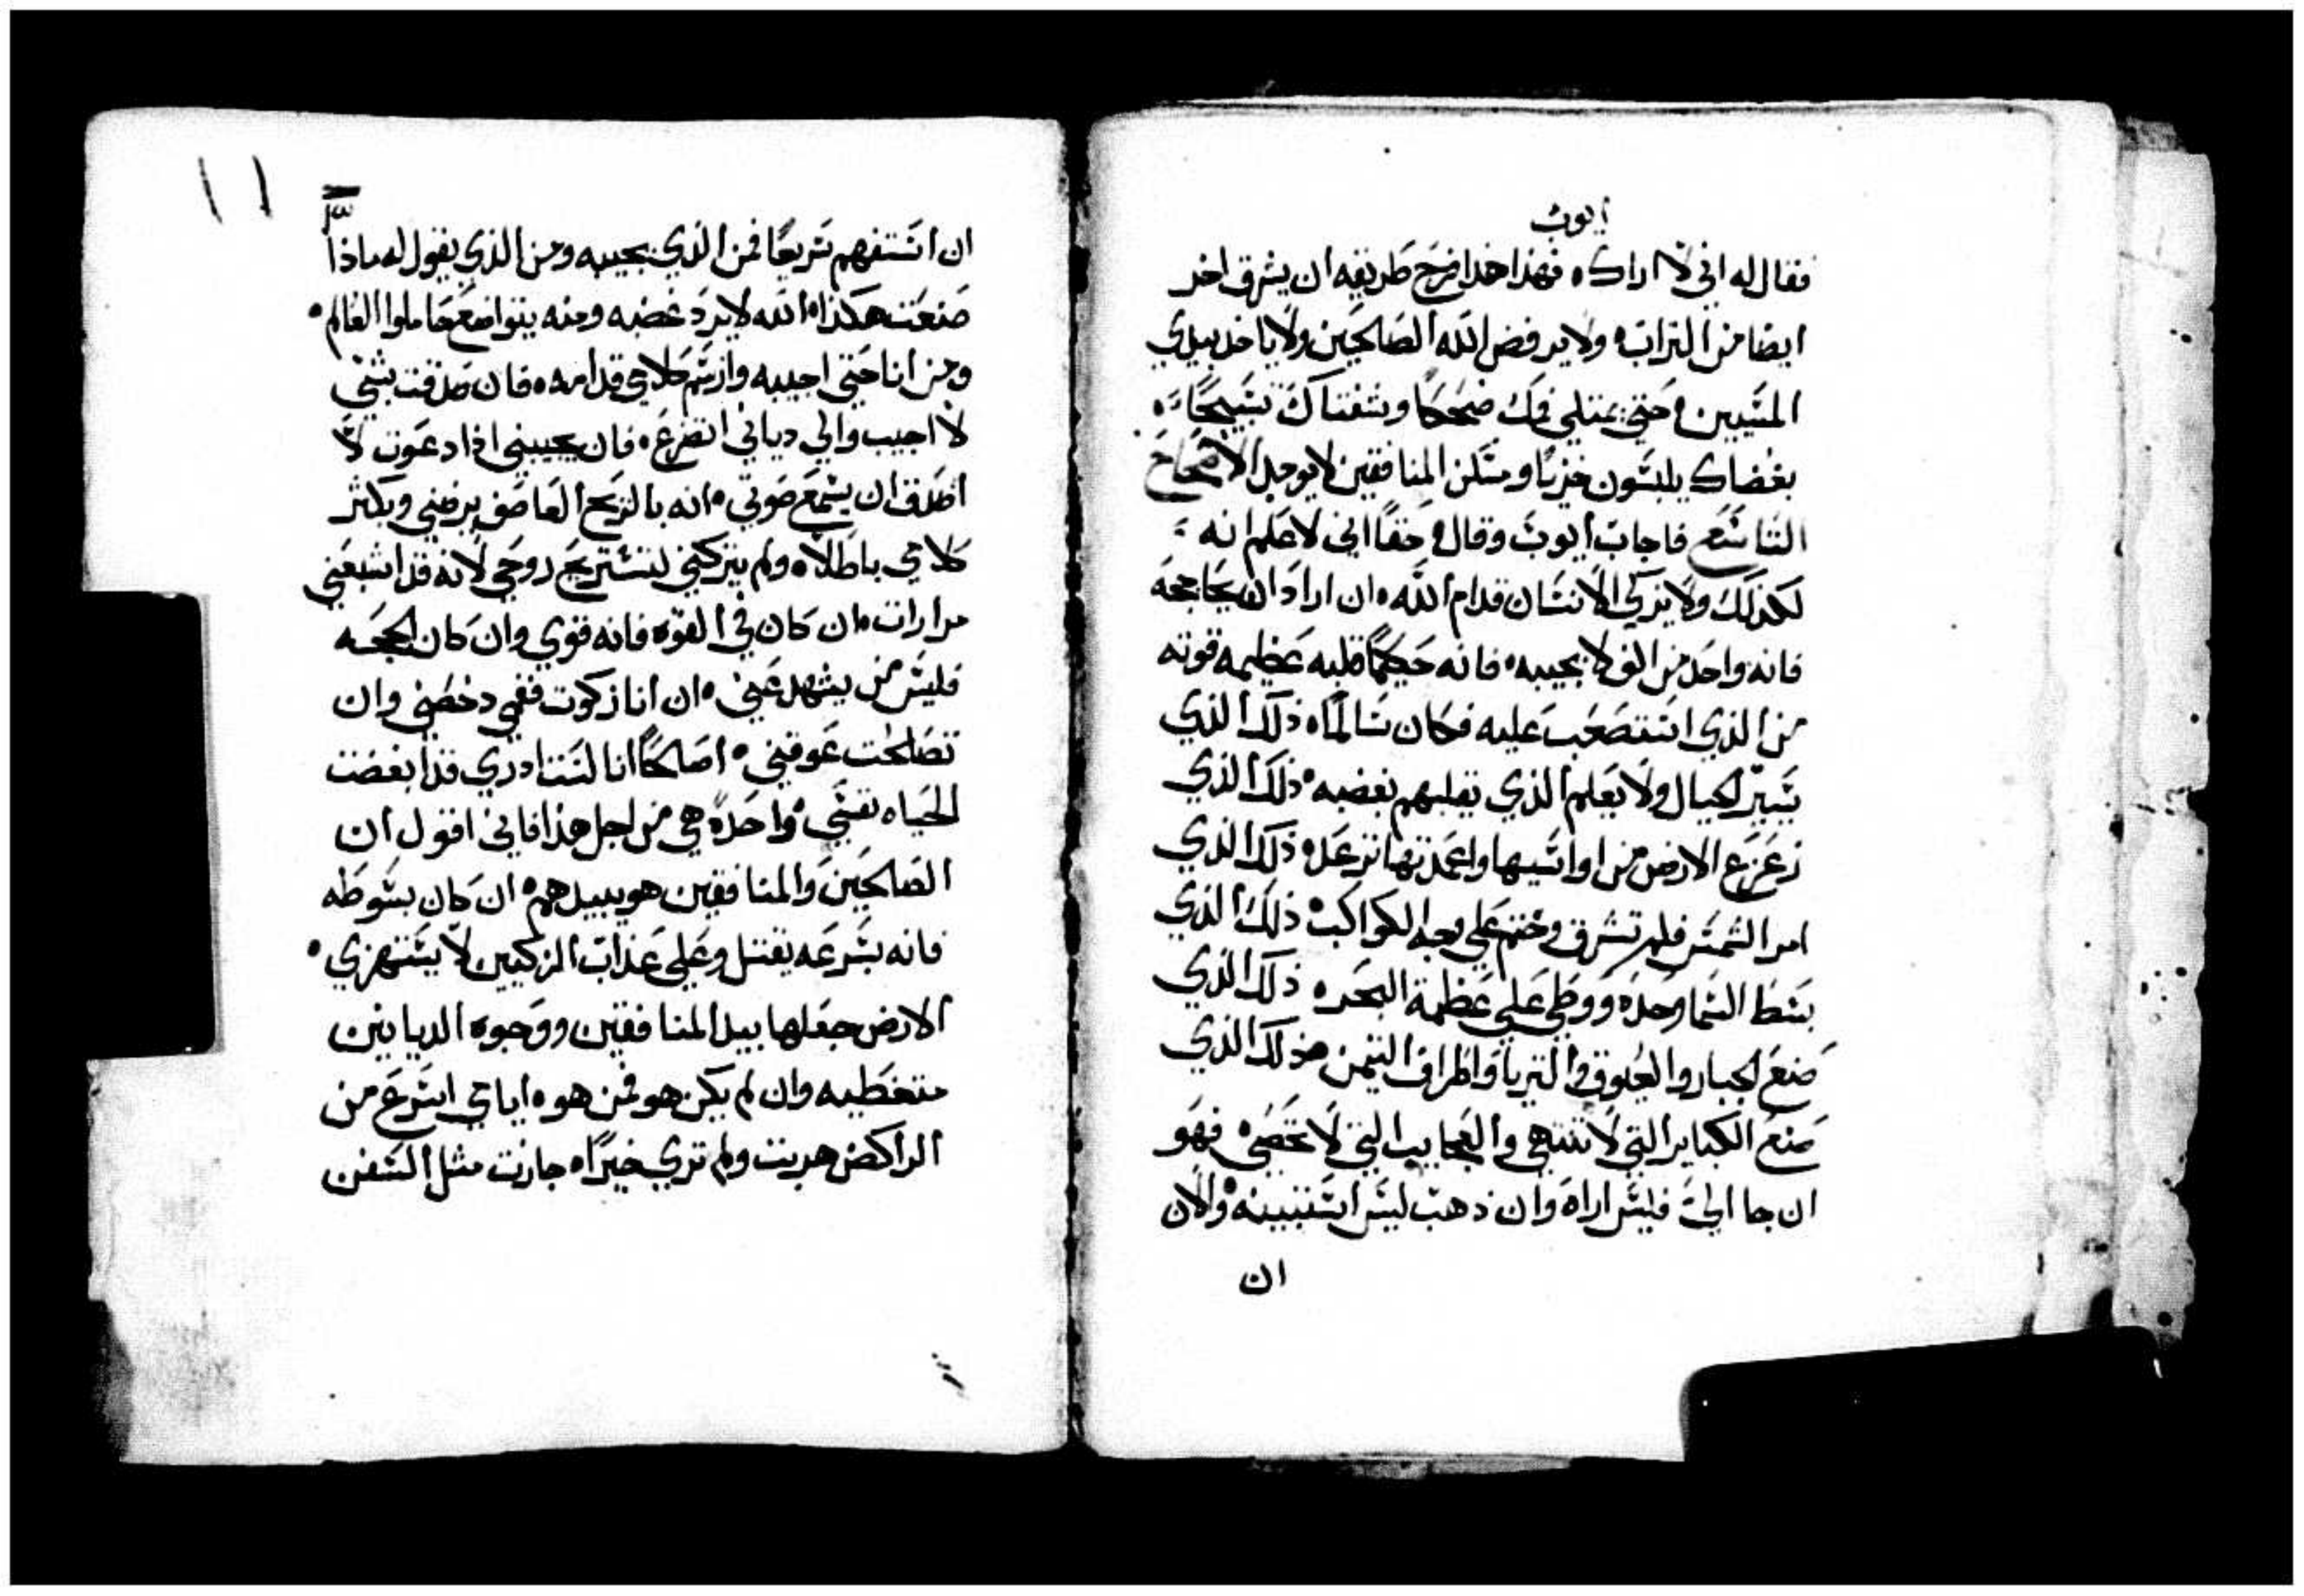 أيوب
فقال له اني لا اراك ه فهذا هذا فرح طريقه ان يشرق اخر
ايضا من التراب ه ولا يرفض الله الصالحين ولا ياخد بيدي
المسيين ه حتي يمتلي فمك ضحكا وشفتاك تسبيحا ه
بغضاك يلبسون خزيا ومسكن المنافقين لا يوجد الاصحاح
التاسع فاجاب أيوب وقال ه حقا اني لاعلم انه
لكذلك ولا يزكي الانسان قدام الله ه ان اراد ان يحاججه
فانه واحد من الف لا يجيبه ه فانه حكيما قلبه عظيمه قوته
من الذي استصعب عليه فكان سالما ه ذلك الذي
يسير الجبال ولا يعلم الذي يقلبهم بغضبه ه ذلك الذي
زعزع الارض من اواسيها واعمدتها ترعد ه ذلك الذي
امر الشمس فلم تشرق وختم علي وجه الكواكب ه ذلك الذي
بسط السما وحده ووطي علي عظمة البحر ه ذلك الذي
صنع الجبار والعيوق والتريا واطراف التيمن ه ذلك الذي
صنع الكباير التي لا تنتهي والعجايب التي لا تحصي ه فهو
ان جا الي فليس اراه وان ذهب ليس استبينه ه والان
ان
١١
ان استفهم سريعا فمن الذي يجيبه ومن الذي يقول له ماذا
صنعت هكذا ه الله لا يرد غضبه ومنه يتواضع حاملوا العالم ه
ومن انا حتي اجيبه وارسم كلامي قدامه ه فان صدقت بشي
لا اجيب والي دياني اتضرع ه فان يجيبني اذا دعوت لا
اصدق ان يسمع صوتي ه انه بالريح العاصف يرضني ويكثر
كلامي باطلا ه ولم يتركني لتستريح روحي لانه قد اشبعني
مرارات ه ان كان في القوه فانه قوي وان كان الحجه
فليس من يشهد عني ه ان انا زكوت ففمي دخضني وان
تصلحت عوقني ه اصالحا انا لست ادري قد ابغضت
الحياه نفسي ه واحدة هي من اجل هذا فاني اقول ان
الصالحين والمنافقين هو يبيدهم ه ان كان بسوطه
فانه بسرعه يقتل وعلي عذاب الزكيين لا يستهزي ه
الارض جعلها بيد المنافقين ووجوه الديانين
متغطيه وان لم يكن هو فمن هو ه ايامي اسرع من
الراكض هربت ولم تري خيرا ه جازت مثل السفن